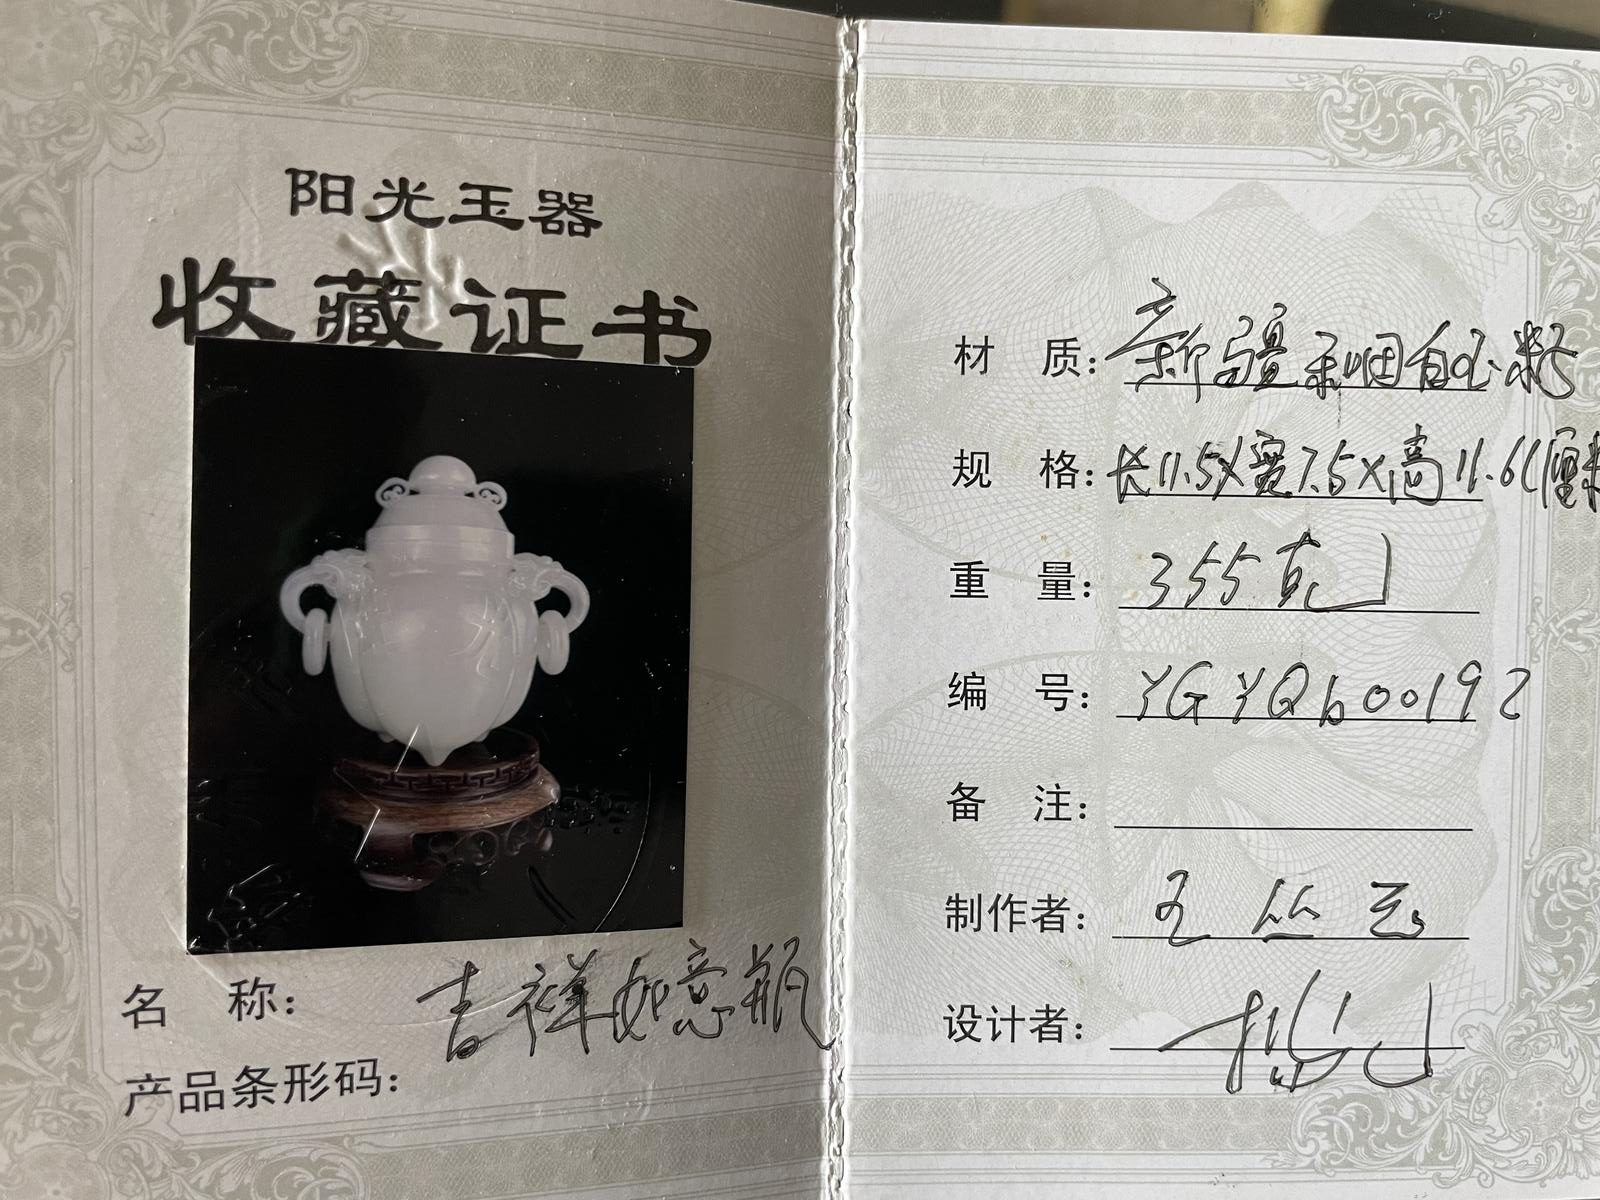 阳光玉器
收藏证书
名 称：吉祥如意瓶
产品条形码：
材 质：新疆和田白玉籽
规 格：长11.5X宽7.5X高11.6(厘米
重 量：355克
编 号：YGYQb00192
备 注：
制作者：
设计者：